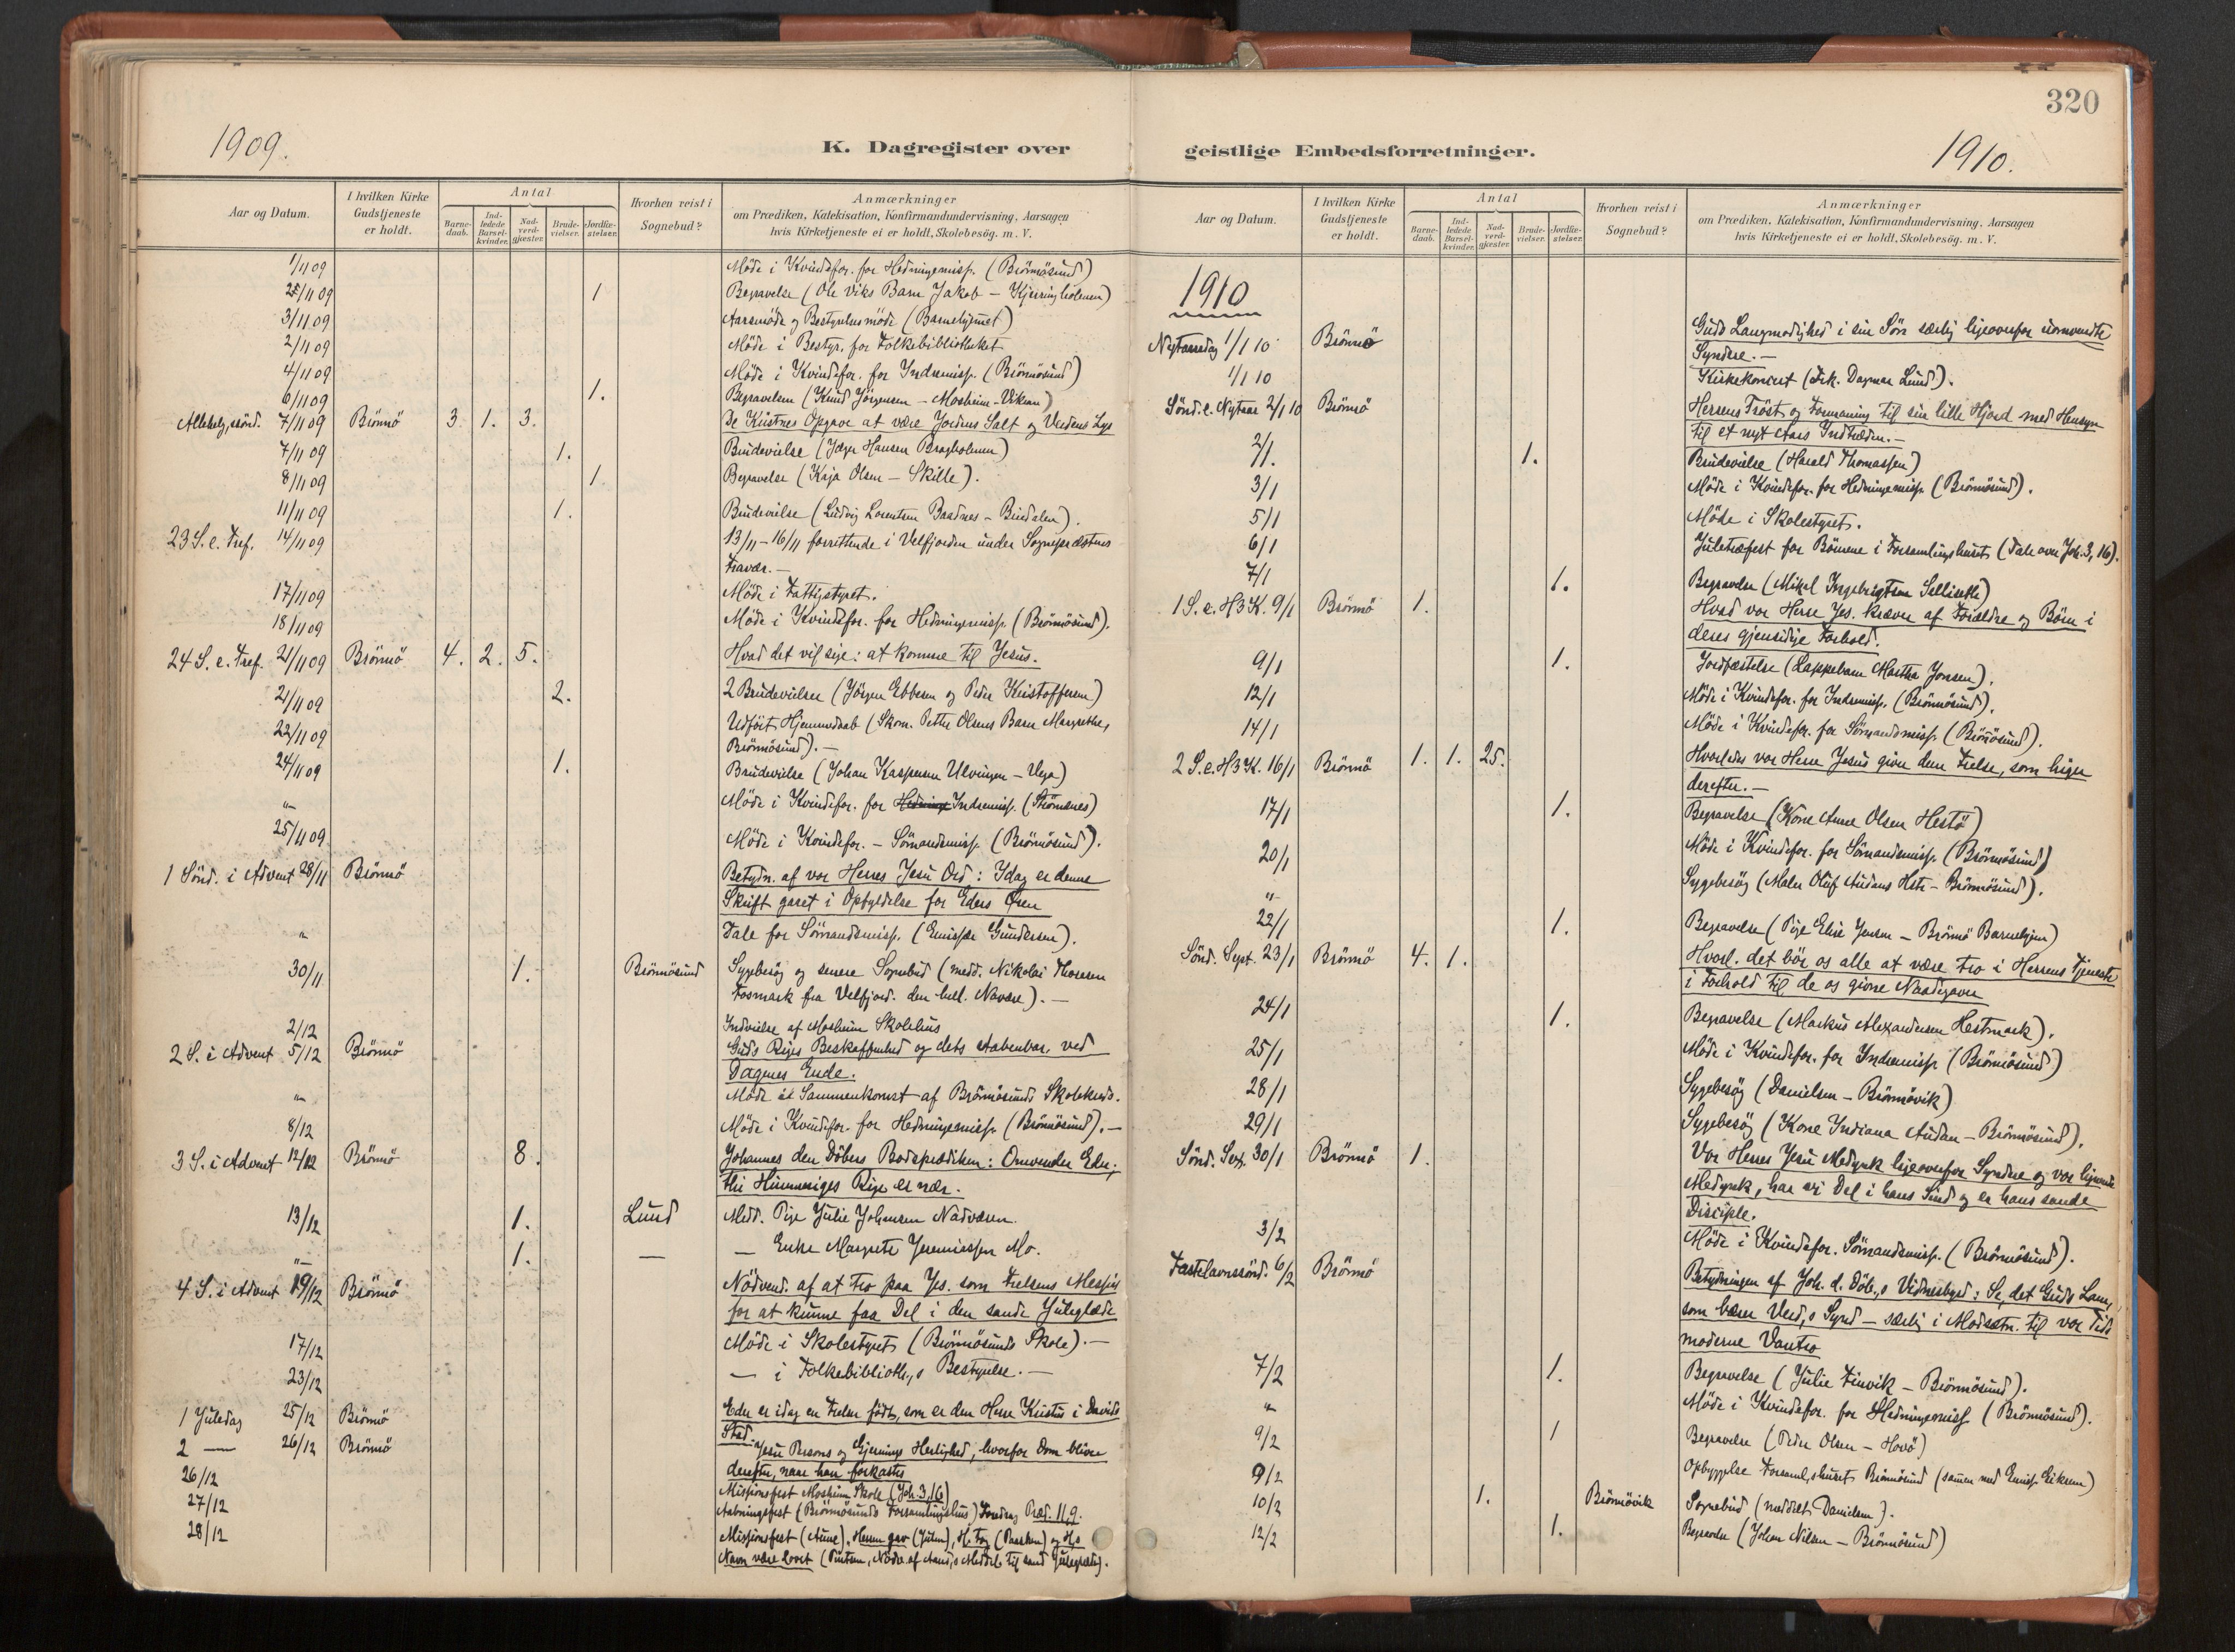 320
1909.
K. Dagregister over
Aar og Datum.
I hvilken Kirke Gudstjeneste er holdt.
Antal
Barne-daab.
Ind-ledede Barsel-kvinder.
Nad-verd-gjester.
Brude-vielser.
Jordfæ-stelser.
Hvorhen reist i Sognebud?
Anmærkninger
om Prædiken, Katekisation, Konfirmandundervisning, Aarsagen
hvis Kirketjeneste ei er holdt, Skolebesøg. m. V.
1/11 09 Möde i Kvindefor. for Hedningemiss. (Brönnösund)
2/11 09 1 Begravelse (Ole Viks Barn Jakob – Kjæringholmen)
3/11 09 Aarsmöde og Bestyrelsesmöde (Barnehjemmet)
2/11 09 Möde i Bestyr. for Folkebibliotheket
4/11 09 Möde i Kvindefor. for Indremiss. (Brönnösund)
6/11 09 1. Begravelsen (Knud Jörgensen – Mosheim-Vikran)
Allehelg.sönd. 7/11 09 Brönnö 3. 1. 3. De Kristnes Opgave at være Jordens Salt og Verdens Lys
7/11 09 1. Brudevielse (Hansen)
8/11 09 1. Begravelse (Kaja Olsen – Skille).
11/11 09 1. Brudevielse (Ludvig Lorentsen – Bindalen).
23 S. e. Tref. 14/11 09 13/11 – 16/11 forrettende i Velfjorden under Sogneprestens
Fravær. –
17/11 09 Möde i Fattigstyret.
18/11 09 Möde i Kvindefor. for Hedningemiss. (Brönnösund).
24 S. e. Tref. 21/11 09 Brönnö 4. 2. 5. Hvad det vil sige: at komme til Jesus.
21/11 09 2. 2 Brudevielser (Jörgen Ebbesen og Peder Kristoffersen)
22/11 09 Udfört Hjemmedaab (Skom. Petter Olsens Barn Margrethe,
Brönnösund). –
24/11 09 1. Brudevielse (Johan Kaspersen Ulvingen – Vega)
" Möde i Kvindefor. for Indremiss. (Strömsnes)
25/11 09 Möde i Kvindefor. – Sömandsmiss. (Brönnösund).
1 Sönd. i Advent 28/11 Brönnö Betydn. af vor Herres Jesu Ord: Idag er denne
Skrift gaaet i Opfyldelse for Eders Øren
" Tale for Sömandsmiss. (Emissær Gundersen).
30/11 1. Brönnösund Sygebesög og senere Sognebud (medd. Nikolai Thoresen
Fosmark fra Velfjord. –
2/12 Indvielse af Mosheim Skolehus
2 S. i Advent 5/12 Brönnö Guds Riges Beskaffenhed og dets Aabenbar. ved
Dagenes Ende.
" Möde Sammenkomst af Brönnösunds Skolekreds.
8/12 Möde i Kvindefor. for Hedningemiss. (Brönnösund). –
3 S. i Advent 12/12 Brönnö 8. Johannes den Döbers Bodsprædiken: Omvender Eder,
thi Himmeriges Rige er nær.
13/12 1. Lund Medd. Pige Julie Johansen Nadveren.
" 1. — — Enke Margrete Jeremiassen Mo.
4 S. i Advent 19/12 Brönnö Nödvend. af at tro paa Jes. som Frelsens Messias
for at kunne faa Del i den sande Juleglæde
17/12 Möde i Skolestyret (Brönnösunds Skole). –
23/12 — i Folkebiblioth.,s Bestyrelse. –
1 Juledag 25/12 Brönnö Eder er idag en Frelser födt, som er den Herre Kristus i Davids
Stad.
2 — 26/12 Brönnö Jesu Persons og Gjernings Herlighed, hvorfor Dom bliver
derefter, naar han forkastes
26/12 Missionsfest Mosheim Skole (Joh. 3,16)
27/12 Aabningsfest (Brönnösunds Forsamlingshus) Foredrag Præd. 11,9.
28/12 Missionsfest (Aune). Herren gav (Julen), H. tog (Paasken) og H.s
Navn være lovet
geistlige Embedsforretninger.
1910.
Aar og Datum.
I hvilken Kirke Gudstjeneste er holdt.
Antal
Barne-daab.
Ind-ledede Barsel-kvinder.
Nad-verd-gjester.
Brude-vielser.
Jordfæ-stelser.
Hvorhen reist i Sognebud?
Anmærkninger
om Prædiken, Katekisation, Konfirmandundervisning, Aarsagen
hvis Kirketjeneste ei er holdt, Skolebesøg. m. V.
1910
Nytaarsdag 1/1 10 Brönnö Guds Langmodighed i sin Sön særlig ligeoverfor uomvendte
Syndere. –
1/1 10 Kirkekoncert (Frk. Dagmar Lund).
Sönd. e. Nytaar 2/1 10 Brönnö Herrens Tröst og Formaning til sin lille Hjord med Hensyn
til et nyt Aars Indtræden. –
2/1. 1. Brudevielse (Harald Thomassen)
3/1 Möde i Kvindefor. for Hedningemiss. (Brönnösund).
5/1 Möde i Skolestyret.
6/1 Juletræfest for Börnene i Forsamlingshuset (Tale over Joh. 3, 16).
7/1 1. Begravelse (Mikal Ingebrigtsen)
1 S. e. H3K. 9/1 Brönnö 1. Hvad vor Herre Jes. kræver af Forældre og Börn i
deres gjensidige Forhold.
9/1 1. Jordfæstelse (Lappebarn Martha Jonsen).
12/1 Möde i Kvindefor. for Indremiss. (Brönnösund).
14/1 Möde i Kvindefor. for Sömandsmiss. (Brönnösund).
2 S. e. H3K. 16/1 Brönnö 1. 1. 25. Hvorledes vor Herre Jesus giver dem Frelse, som higer
derefter. –
17/1 1. Begravelse (Kone Anne Olsen Hestö)
20/1 Möde i Kvindefor. for Sömandsmiss. (Brönnösund)
" Sygebesög (Maler Oluf Audans Hstr. – Brönnösund).
22/1 1. Begravelse (Pige Elise Jensen – Brönnö Barnehjem)
Sönd. Sept. 23/1 Brönnö 4. 1. Hvorl. det bör os alle at være tro i Herrens Tjeneste
i Forhold til de os givne Naadegaver
24/1 1. Begravelse (Markus Alexandersen Hestmark).
25/1 Möde i Kvindefor. for Indremiss. (Brönnösund)
28/1 Sygebesög (Danielsen – Brönnövik)
29/1 Sygebesög (Kone Indiana Audan – Brönnösund).
Sönd. Sex. 30/1 Brönnö 1. Vor Herres Jesu Medynk ligeoverfor Syndere og vor lignende
Medynk, har vi Del i hans Sind og er hans sande
Disciple.
3/2 Möde i Kvindefor. Sömandsmiss. (Brönnösund).
Fastelavnssönd. 6/2 Brönnö Betydningen af Joh. d. Döb.,s Vidnesbyrd: Se, det Guds Lam,
som bærer Verd.,s Synd – særlig i Modsætn. til vor Tids
moderne Vantro
7/2 1. Begravelse (Julie Tinvik – Brönnösund).
" Möde i Kvindefor. for Hedningemiss. (Brönnösund).
9/2 1 Begravelse (Peder Olsen – Hovö)
9/2 Opbyggelse Forsaml,shuset Brönnösund (sammen med Emiss. Eiksen)
10/2 1. Brönnövik Sognebud (meddelt Danielsen).
12/2 1. Begravelse (Johan Nilsen – Brönnösund)